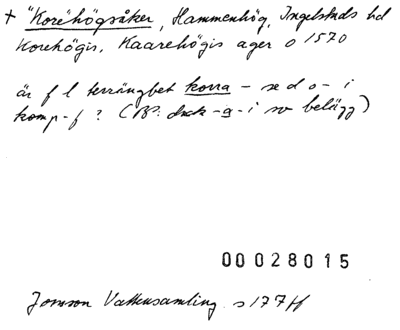 + "Korehögsåker, Hammenhög, Ingelstads hd
Korehögis, Kaarehögis ager o 1570
är f l terrängbet korra - se d o - i
komp-f? (Bⁿ: dock -g- i sv belägg)
00028015
Jonsson Vattensamling s 177ff